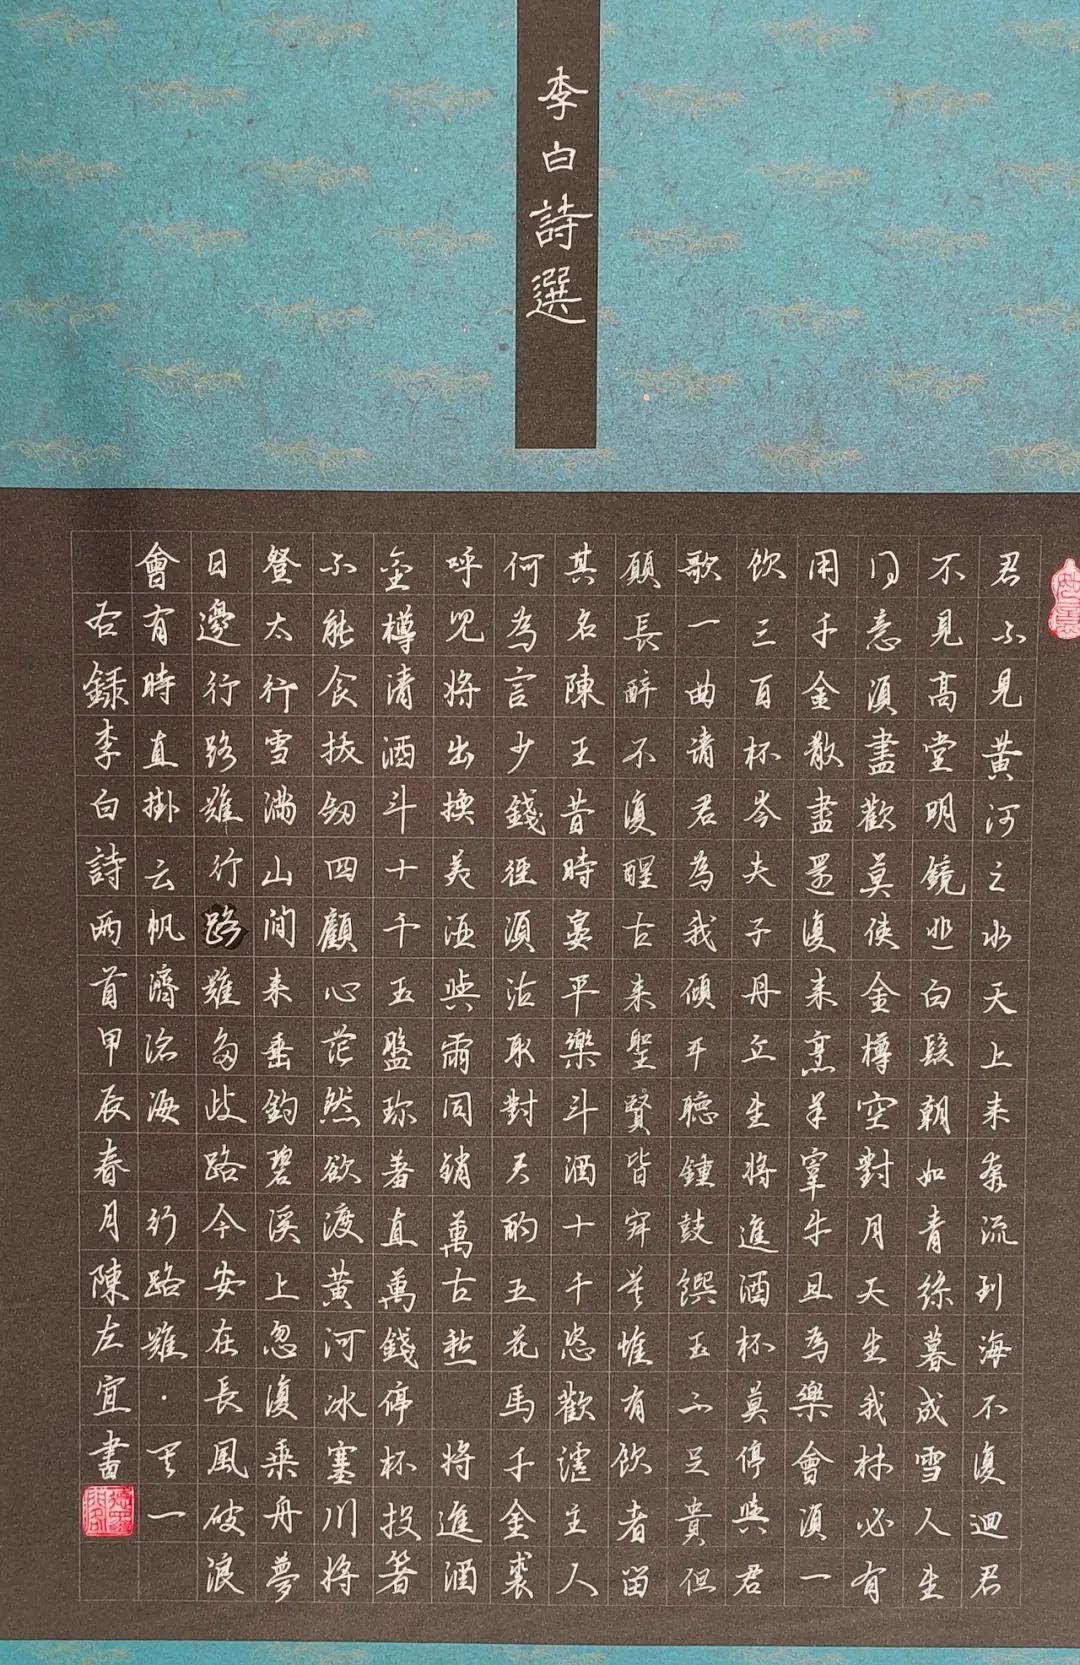 李白詩選
君不見黃河之水天上来奔流到海不復迴君
不見高堂明鏡悲白髮朝如青絲暮成雪人生
得意須盡歡莫使金樽空對月天生我材必有
用千金散盡還復来烹羊宰牛且為樂會須一
飲三百杯岑夫子丹丘生將進酒杯莫停與君
歌一曲请君為我傾耳聽鐘鼓饌玉不足貴但
願長醉不復醒古来聖賢皆寂寞惟有飲者留
其名陳王昔時宴平樂斗酒十千恣歡謔主人
何為言少錢徑須沽取對君酌五花馬千金裘
呼兒將出換美酒與爾同銷萬古愁 將進酒
金樽清酒斗十千玉盤珍羞直萬錢停杯投箸
不能食拔劍四顧心茫然欲渡黃河冰塞川將
登太行雪滿山閒来垂釣碧溪上忽復乘舟夢
日邊行路難行路難多歧路今安在長風破浪
會有時直掛云帆濟滄海 行路難·其一
右錄李白詩两首甲辰春月陳左宜書